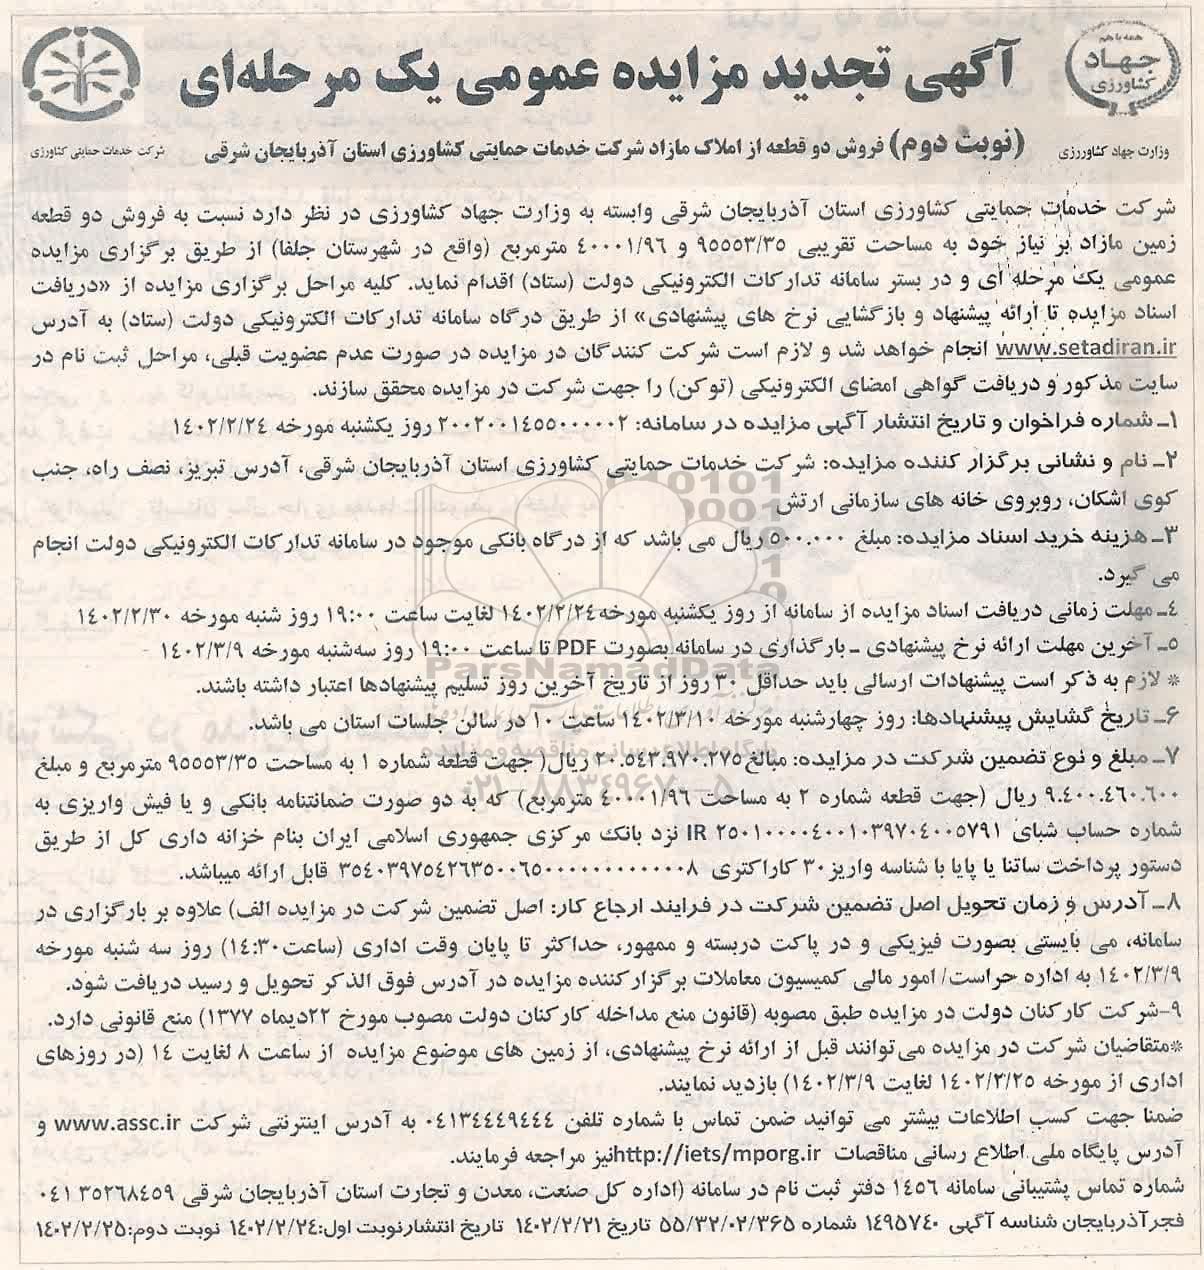 همه با هم
جهاد
کشاورزی
وزارت جهاد کشاورزی
شرکت خدمات حمایتی کشاورزی
آگهی تجدید مزایده عمومی یک مرحله‌ای
(نوبت دوم) فروش دو قطعه از املاک مازاد شرکت خدمات حمایتی کشاورزی استان آذربایجان شرقی
شرکت خدمات حمایتی کشاورزی استان آذربایجان شرقی وابسته به وزارت جهاد کشاورزی در نظر دارد نسبت به فروش دو قطعه
زمین مازاد بر نیاز خود به مساحت تقریبی ۹۵۵۵۳/۳۵ و ۴۰۰۰۱/۹۶ مترمربع (واقع در شهرستان جلفا) از طریق برگزاری مزایده
عمومی یک مرحله ای و در بستر سامانه تدارکات الکترونیکی دولت (ستاد) اقدام نماید. کلیه مراحل برگزاری مزایده از «دریافت
اسناد مزایده تا ارائه پیشنهاد و بازگشایی نرخ های پیشنهادی» از طریق درگاه سامانه تدارکات الکترونیکی دولت (ستاد) به آدرس
www.setadiran.ir انجام خواهد شد و لازم است شرکت کنندگان در مزایده در صورت عدم عضویت قبلی، مراحل ثبت نام در
سایت مذکور و دریافت گواهی امضای الکترونیکی (توکن) را جهت شرکت در مزایده محقق سازند.
۱ـ شماره فراخوان و تاریخ انتشار آگهی مزایده در سامانه: ۲۰۰۲۰۰۱۴۵۵۰۰۰۰۰۲ روز یکشنبه مورخه ۱۴۰۲/۲/۲۴
۲ـ نام و نشانی برگزار کننده مزایده: شرکت خدمات حمایتی کشاورزی استان آذربایجان شرقی، آدرس تبریز، نصف راه، جنب
کوی اشکان، روبروی خانه های سازمانی ارتش
۳ـ هزینه خرید اسناد مزایده: مبلغ ۵۰۰.۰۰۰ ریال می باشد که از درگاه بانکی موجود در سامانه تدارکات الکترونیکی دولت انجام
می گیرد.
۴ـ مهلت زمانی دریافت اسناد مزایده از سامانه از روز یکشنبه مورخه۱۴۰۲/۲/۲۴ لغایت ساعت ۱۹:۰۰ روز شنبه مورخه ۱۴۰۲/۲/۳۰
۵ـ آخرین مهلت ارائه نرخ پیشنهادی ـ بارگذاری در سامانه بصورت PDF تا ساعت ۱۹:۰۰ روز سه‌شنبه مورخه ۱۴۰۲/۳/۹
* لازم به ذکر است پیشنهادات ارسالی باید حداقل ۳۰ روز از تاریخ آخرین روز تسلیم پیشنهادها اعتبار داشته باشند.
۶ـ تاریخ گشایش پیشنهادها: روز چهارشنبه مورخه ۱۴۰۲/۳/۱۰ ساعت ۱۰ در سالن جلسات استان می باشد.
۷ـ مبلغ و نوع تضمین شرکت در مزایده: مبالغ۲۰.۵۴۳.۹۷۰.۲۷۵ ریال( جهت قطعه شماره ۱ به مساحت ۹۵۵۵۳/۳۵ مترمربع و مبلغ
۹.۴۰۰.۴۶۰.۶۰۰ ریال (جهت قطعه شماره ۲ به مساحت ۴۰۰۰۱/۹۶ مترمربع) که به دو صورت ضمانتنامه بانکی و یا فیش واریزی به
شماره حساب شبای IR ۲۵۰۱۰۰۰۰۴۰۰۱۰۳۹۷۰۴۰۰۵۷۹۱ نزد بانک مرکزی جمهوری اسلامی ایران بنام خزانه داری کل از طریق
دستور پرداخت ساتنا یا پایا با شناسه واریز۳۰ کاراکتری ۳۵۴۰۳۹۷۵۴۲۶۳۵۰۰۶۵۰۰۰۰۰۰۰۰۰۰۰۰۸ قابل ارائه میباشد.
۸ـ آدرس و زمان تحویل اصل تضمین شرکت در فرایند ارجاع کار: اصل تضمین شرکت در مزایده الف) علاوه بر بارگزاری در
سامانه، می بایستی بصورت فیزیکی و در پاکت دربسته و ممهور، حداکثر تا پایان وقت اداری (ساعت۱۴:۳۰) روز سه شنبه مورخه
۱۴۰۲/۳/۹ به اداره حراست/ امور مالی کمیسیون معاملات برگزار کننده مزایده در آدرس فوق الذکر تحویل و رسید دریافت شود.
۹-شرکت کارکنان دولت در مزایده طبق مصوبه (قانون منع مداخله کارکنان دولت مصوب مورخ ۲۲دیماه ۱۳۷۷) منع قانونی دارد.
*متقاضیان شرکت در مزایده می‌توانند قبل از ارائه نرخ پیشنهادی، از زمین های موضوع مزایده از ساعت ۸ لغایت ۱۴ (در روزهای
اداری از مورخه ۱۴۰۲/۲/۲۵ لغایت ۱۴۰۲/۳/۹) بازدید نمایند.
ضمنا جهت کسب اطلاعات بیشتر می توانید ضمن تماس با شماره تلفن ۰۴۱۳۴۴۴۹۴۴۴ به آدرس اینترنتی شرکت www.assc.ir و
آدرس پایگاه ملی اطلاع رسانی مناقصات http://iets/mporg.irنیز مراجعه فرمایند.
شماره تماس پشتیبانی سامانه ۱۴۵۶ دفتر ثبت نام در سامانه (اداره کل صنعت، معدن و تجارت استان آذربایجان شرقی ۰۴۱۳۵۲۶۸۴۵۹
فجرآذربایجان شناسه آگهی ۱۴۹۵۷۴۰ شماره ۵۵/۳۲/۰۲/۳۶۵ تاریخ ۱۴۰۲/۲/۲۱ تاریخ انتشارنوبت اول:۱۴۰۲/۲/۲۴ نوبت دوم:۱۴۰۲/۲/۲۵
ParsNamadData
۰۲۱-۸۸۳۴۹۶۷۰-۵